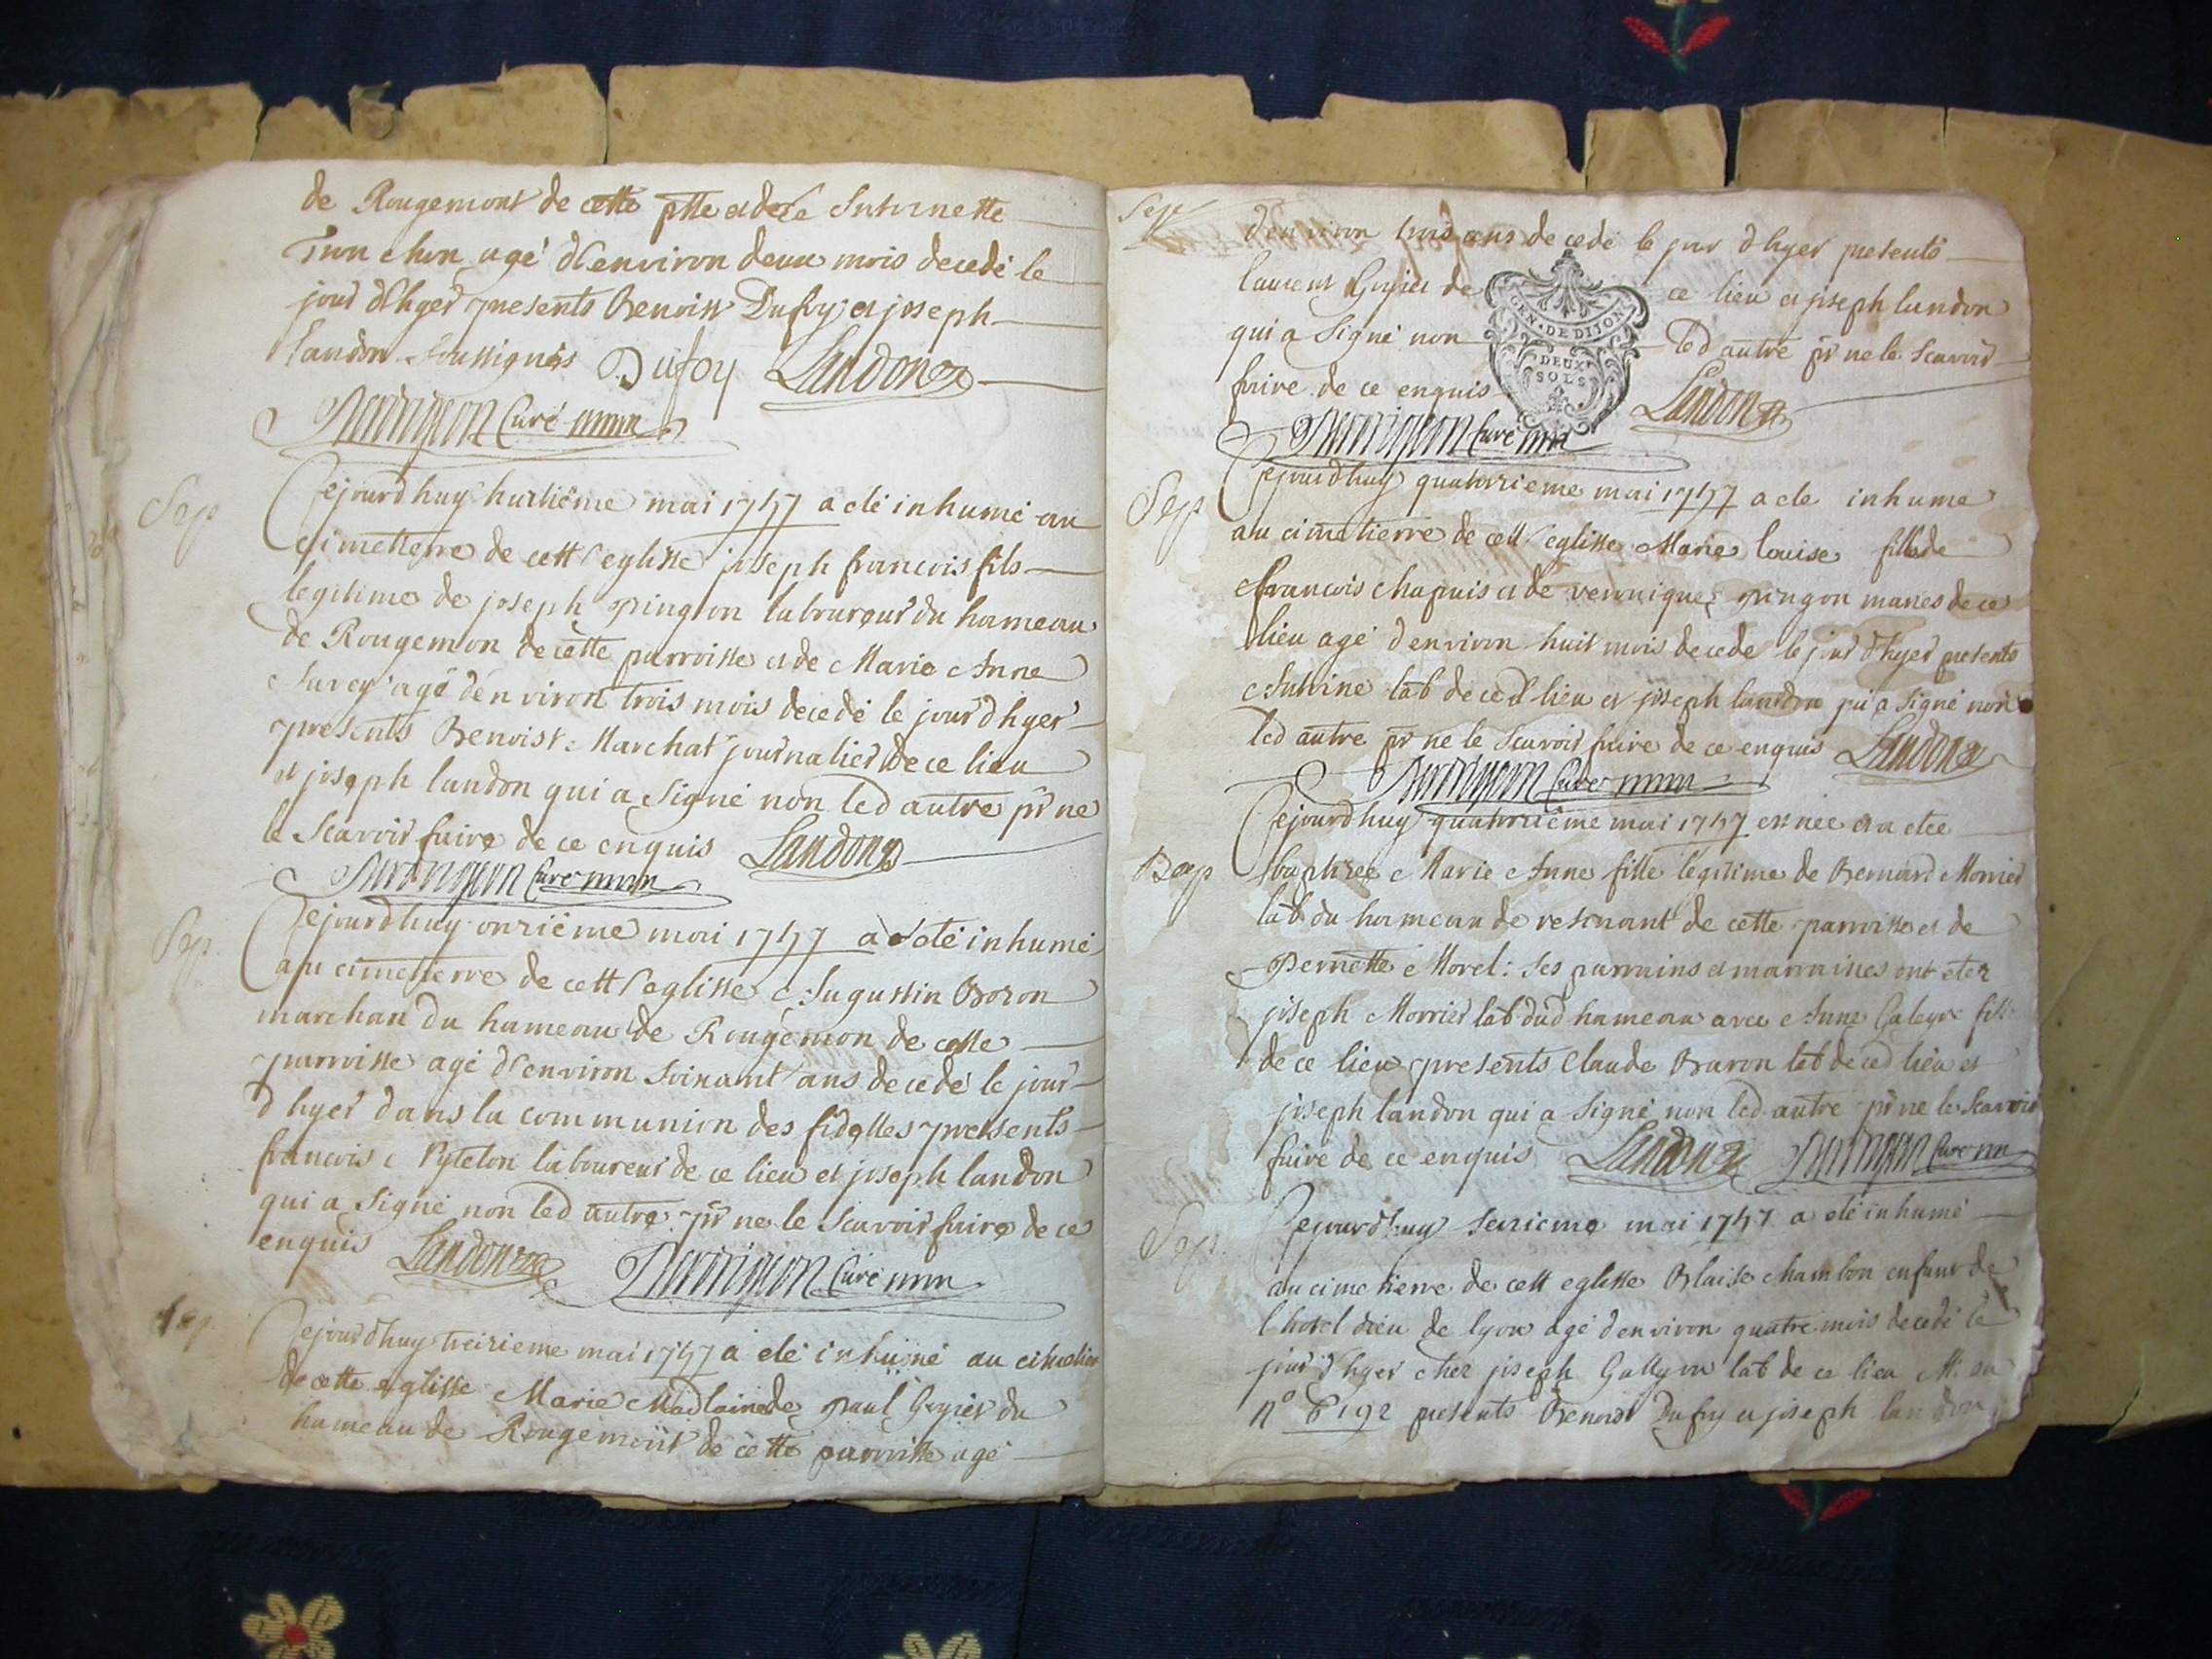 de Rougemont de cette ptte et de Antoinette
chon agé d'environ deux mois decedé le
jour d'hyer presents Benoist Dufoy et joseph
Landon soussignés Dufoy Landon
Curé
Sep
Cejourdhuy huitiême mai 1757 a eté inhumé au
cimetierre de cett eglisse joseph francois fils
legitime de joseph pingeon laboureur du hameau
de Rougemon de cette parroisse et de Marie Anne
agé d'environ trois mois decedé le jour d'hyer
presents Benoist Marchat journalier de ce lieu
et joseph landon qui a signé non led autre pr ne
le scavoir faire de ce enquis Landon
Curé
Sep.
Cejourdhuy onziême mai 1757 a eté inhumé
au cimetierre de cett eglisse Augustin Bozon
marchan du hameau de Rougemon de cette
parroisse agé d'environ soixant ans decedé le jour
d'hyer dans la communion des fidelles presents
francois laboureur de ce lieu et joseph landon
qui a signé non led autre pr ne le scavoir faire de ce
enquis Landon Curé
Sep.
Cejourdhuy treizieme mai 1757 a eté inhumé au cimetier
de cette eglisse Marie Madlaine de paul du
hameau de Rougemont de cette parroisse agé
Sep
d'environ trois ans decedé le jour d'hyer presents
laurent de ce lieu et joseph landon
GEN. DE DIJON
qui a signé non led autre pr ne le scavoir
DEUX
SOLS
faire de ce enquis Landon
Curé
Sep
Cejourdhuy quatorzieme mai 1757 a ete inhume
au cimetierre de cett eglisse Marie louise fille de
francois chapuis et de veronique pingon maries de ce
lieu agé d'environ huit mois decede le jour d'hyer presents
Antoine lab de ced lieu et joseph landon qui a signé non
led autre pr ne le scavoir faire de ce enquis Landon
Curé
Cejourdhuy quatorziême mai 1757 est née et a etee
Bap
baptizée Marie Anne fille legitime de Bernard Morrier
lab du hameau de resenant de cette parroisse et de
Pernette Morel: ses parrains et marraines ont etez
joseph Morrier lab dud hameau avec Anne fille
de ce lieu presents Claude Baron lab de ced lieu et
joseph landon qui a signé non led autre pr ne le scavoir
faire de ce enquis Landon Curé
Sep.
Cejourdhuy seizieme mai 1757 a eté inhumé
au cimetierre de cett eglisse Blaise chambon enfant de
l'hotel dieu de lyon agé d'environ quatre mois decedé le
jour d'hyer chez joseph Gallyon lab de ce lieu au
no 6192 presents Benoist Dufoy et joseph landon